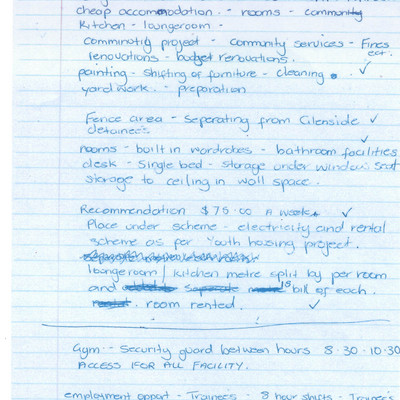 cheap accommodation. - rooms - community
Kitchen - loungeroom -
comminotiy project - community services - Fines
renovations - budget renovations. ect.
painting - shifting of furniture - cleaning. ✓
yard work. - preparation
Fence area - seperating from Glenside ✓
detainees
rooms - built in wardrobes - bathroom facilities ✓
desk - single bed - storage under window seat
storage to ceiling in wall space.
Recommendation $75.00 A week. ✓
Place under scheme - electricity and rental
scheme as per Youth hosing project.
loungeroom / kitchen metre split by per room
and is bill of each
room rented. ✓
Gym - Security guard between hours 8.30 - 10.30
ACCESS (FOR ALL FACILITY.
employment opport - Trainee's - 8 hour shifts - Trainee's